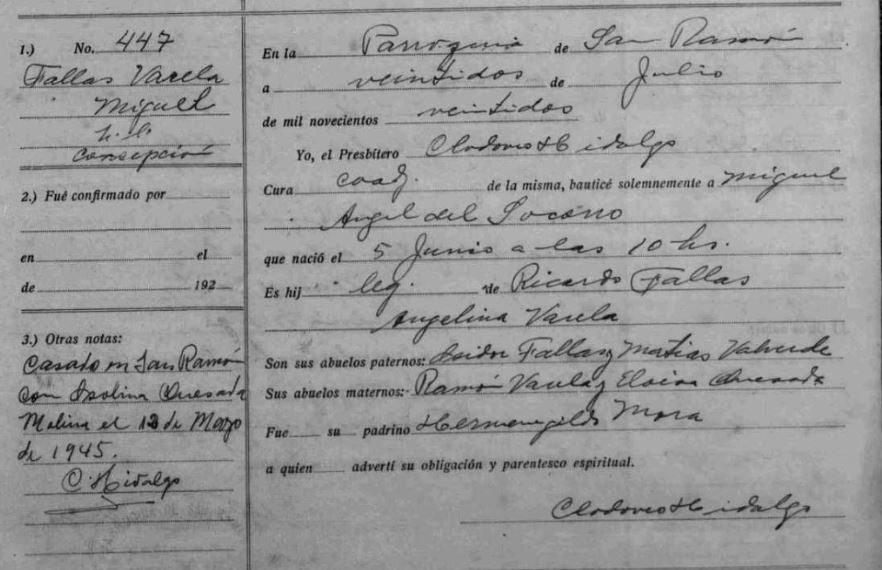 1.) No. 447
Fallas Varela
Miguel
h. l.
Concepción
2.) Fué confirmado por
en el
de 192
3.) Otras notas:
Casado en San Ramón
con Isolina Quesada
Molina el 12 de Mayo
de 1945.
C. Hidalgo
En la Parroquia de San Ramón
a veintidos de Julio
de mil novecientos veintidos
Yo, el Presbítero Clodoveo Hidalgo
Cura coadj. de la misma, bauticé solemnemente a Miguel
Angel del Socorro
que nació el 5 Junio a las 10 hs.
Es hij leg. de Ricardo Fallas
Angelina Varela
Son sus abuelos paternos: Isidor Fallas y Matias Valverde
Sus abuelos maternos: Ramón Varela y Eloisa Quesada
Fue su padrino Hermenegildo Mora
a quien advertí su obligación y parentesco espiritual.
Clodoveo Hidalgo